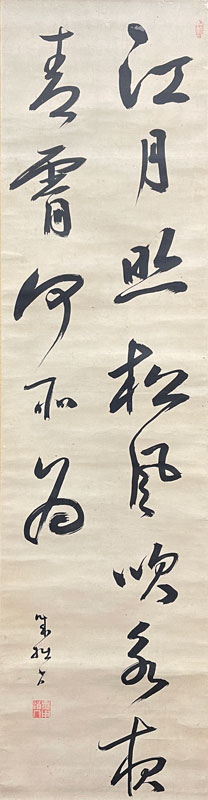 江月照松風吹永夜
青霄何所為